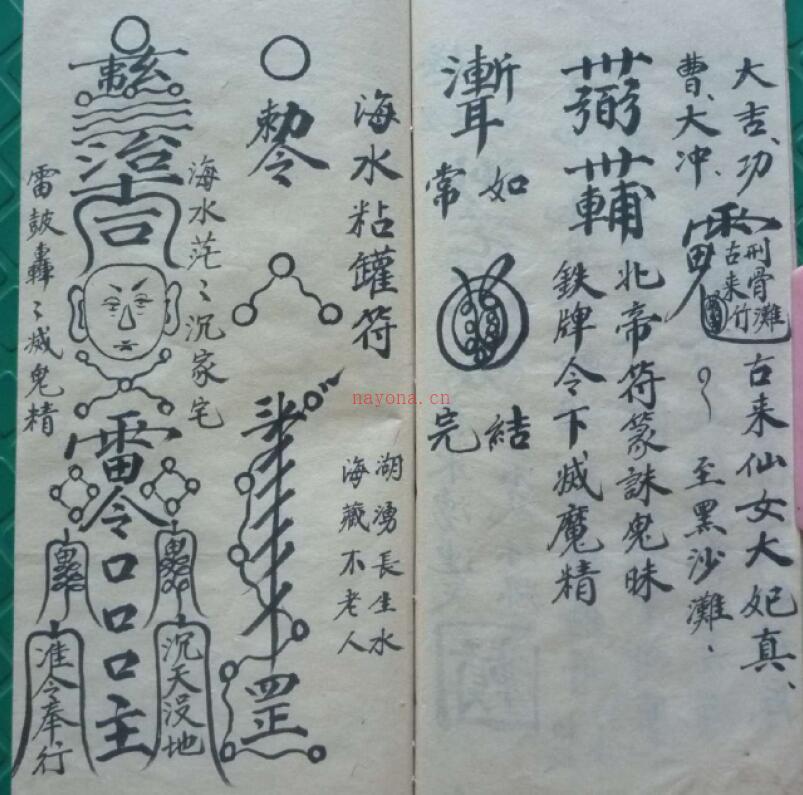 大吉、功
曹、大冲、
刑骨灘
古来竹
古来仙女大妃真、
至黑沙灘、
北帝符篆誅鬼昧
鉄牌令下滅魔精
如常
結完
海水粘罐符
敕令
湖湧長生水
海藏不老人
罡
海水茫〻沉家宅
治
吉
雷令
口口口主
沉天没地
雷鼓轟〻滅鬼精
准令奉行
nayona.cn